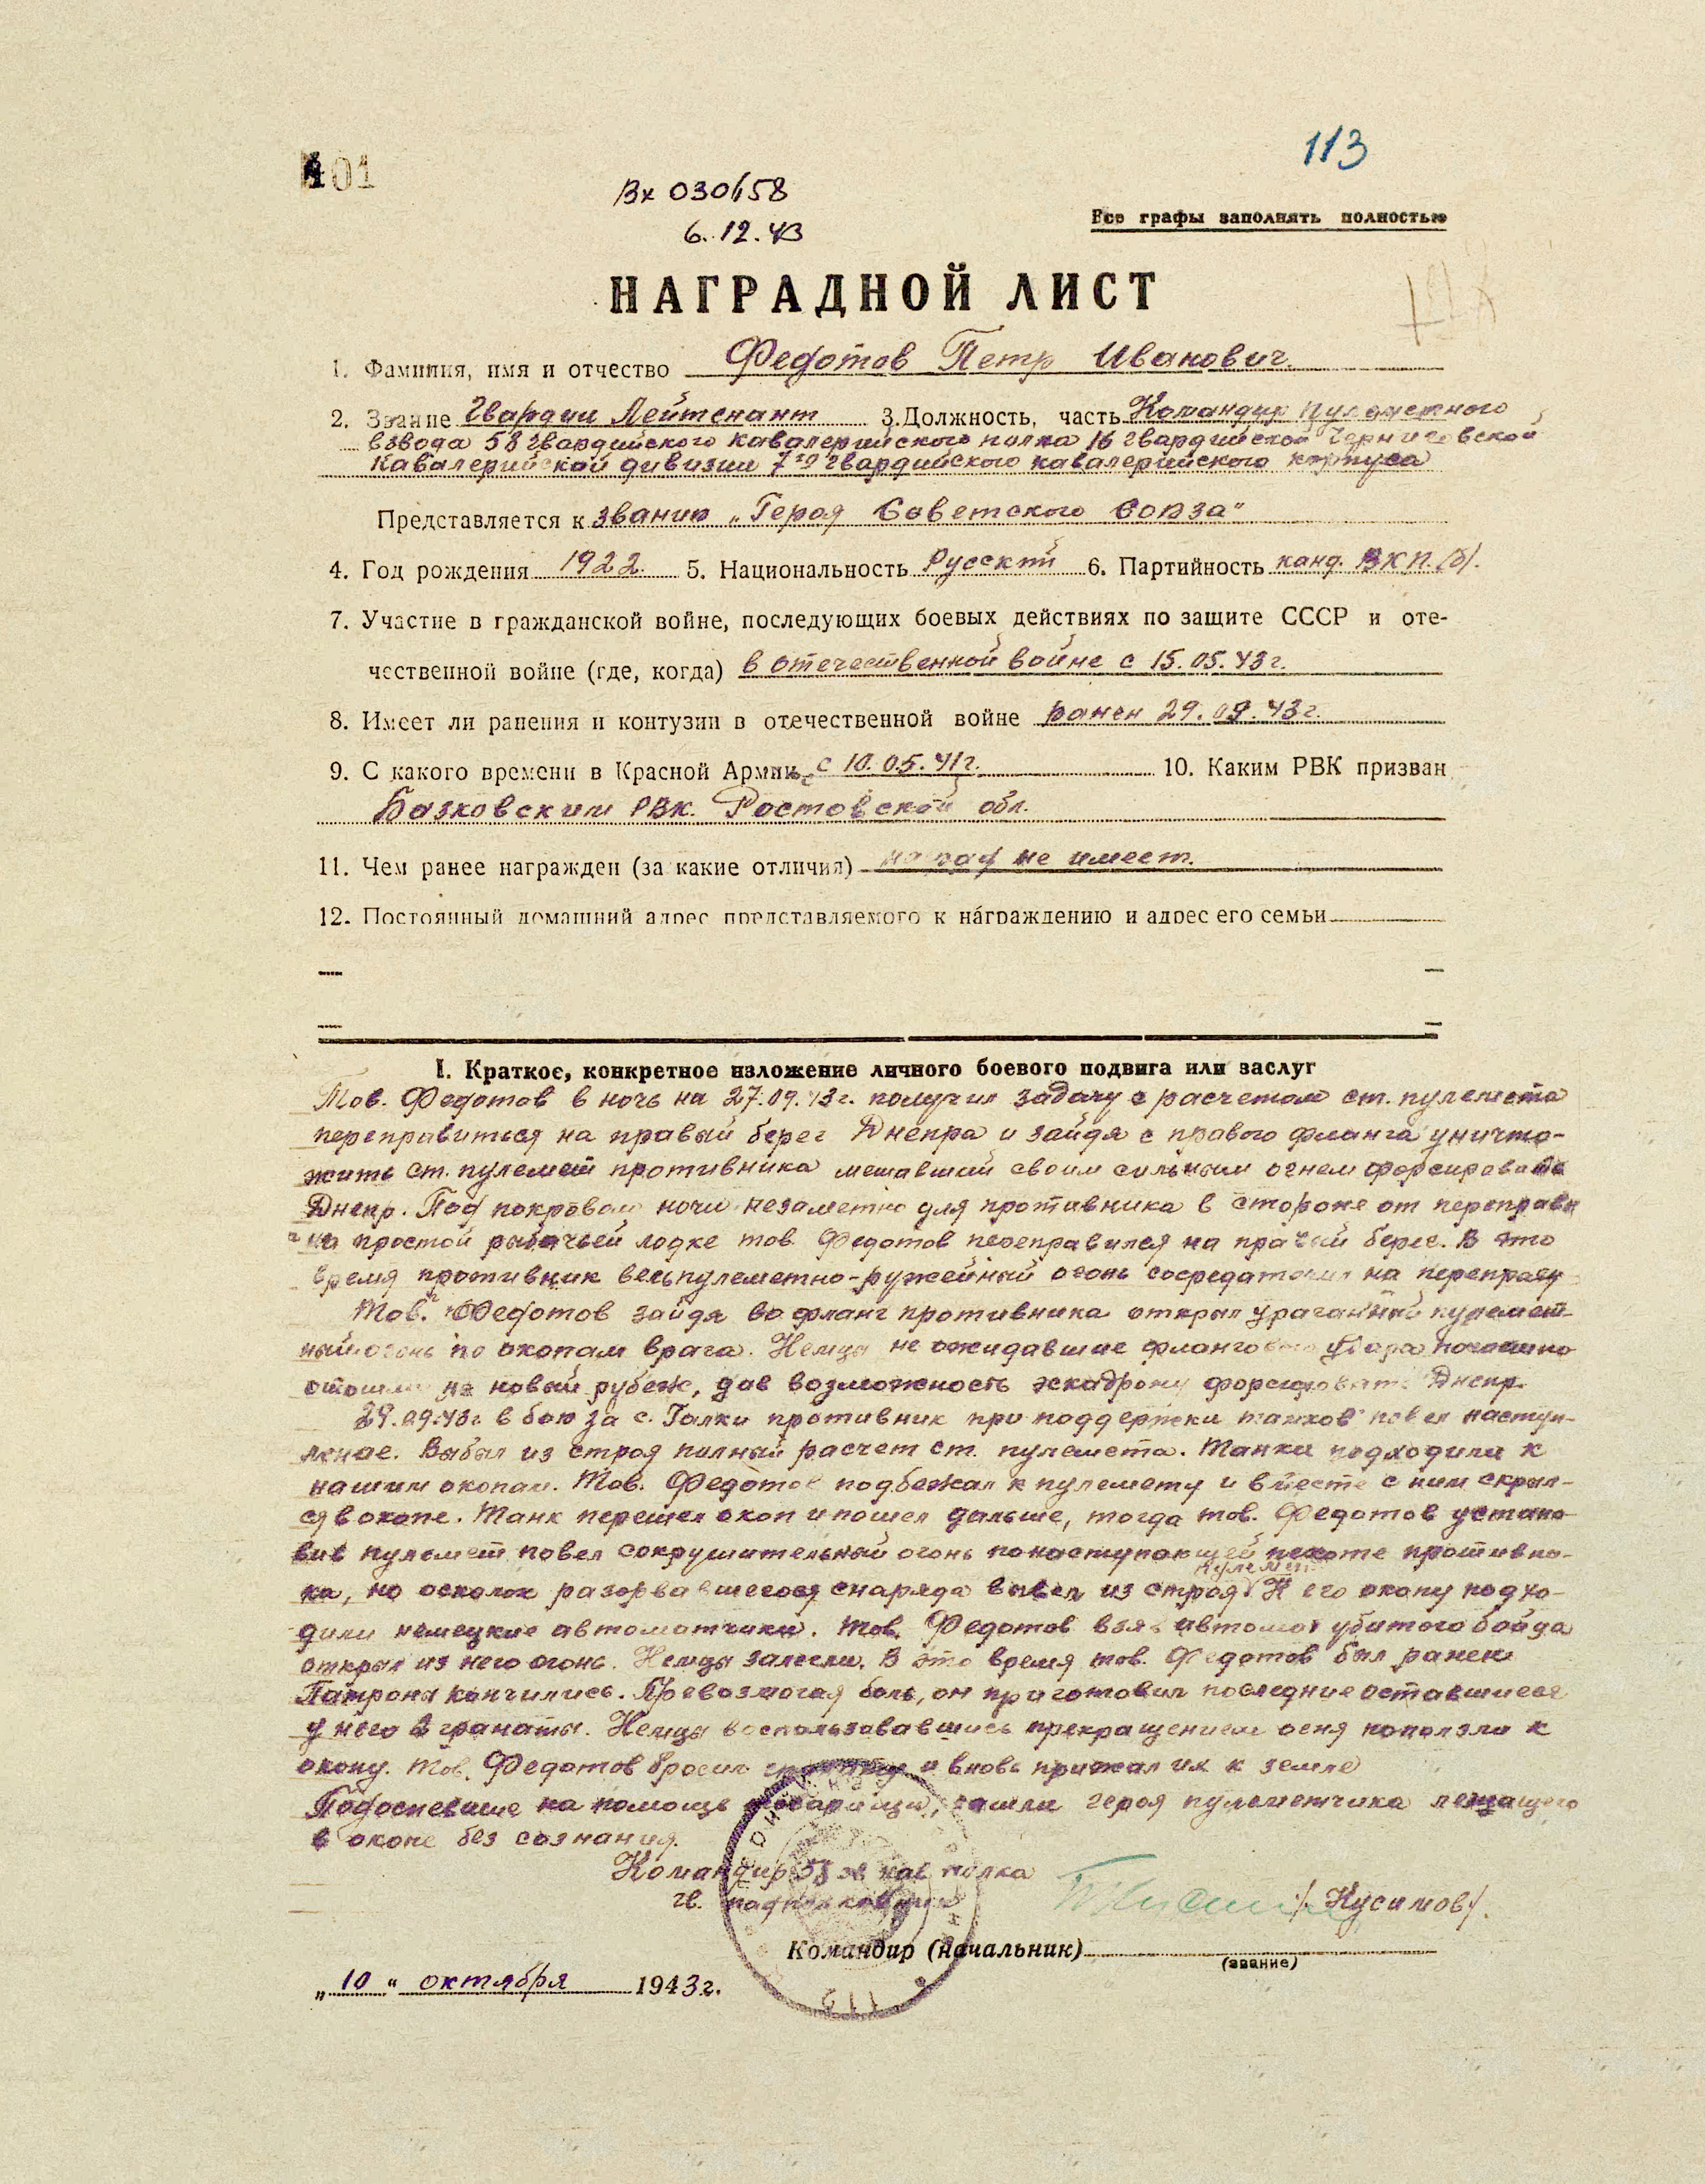 113
Вх 030658
6.12.43
Все графы заполнять полностью
НАГРАДНОЙ ЛИСТ
1. Фамилия, имя и отчество Федотов Петр Иванович.
2. Звание Гвардии Лейтенант 3. Должность, часть Командир пулеметного
взвода 58 гвардийского кавалерийского полка 16 гвардийской Черниговской
Кавалерийской дивизии 7го гвардийского кавалерийского корпуса
Представляется к званию „Героя Советского Союза"
4. Год рождения 1922 5. Национальность Русский 6. Партийность канд. ВКП(б).
7. Участие в гражданской войне, последующих боевых действиях по защите СССР и оте-
чественной войне (где, когда) в отечественной войне с 15.05.43г.
8. Имеет ли ранения и контузии в отечественной войне ранен 29.09.43г.
9. С какого времени в Красной Армии с 10.05.41г. 10. Каким РВК призван
Базковским РВК. Ростовской обл.
11. Чем ранее награжден (за какие отличия) наград не имеет.
12. Постоянный домашний адрес представляемого к награждению и адрес его семьи
I. Краткое, конкретное изложение личного боевого подвига или заслуг
Тов. Федотов в ночь на 27.09.43г. получил задачу с расчетом ст. пулемета
переправиться на правый берег Днепра и зайдя с правого фланга уничто-
жить ст. пулемет противника мешавший своим сильным огнем форсировать
Днепр. Под покровом ночи незаметно для противника в стороне от переправы
на простой рыбачьей лодке тов. Федотов переправился на правый берег. В это
время противник весь пулеметно-ружейный огонь сосредаточил на переправу
Тов. Федотов зайдя во фланг противника открыл ураганный пулемет-
ный огонь по окопам врага. Немцы не ожидавшие флангового удара поспешно
отошли на новый рубеж, дав возможность эскадрону форсировать Днепр.
29.09.43г в бою за с. Галки противник при поддержки танков повел наступ-
ление. Выбыл из строя полный расчет ст. пулемета. Танки подходили к
нашим окопам. Тов. Федотов подбежал к пулемету и вместе с ним скрыл-
ся в окопе. Танк перешел окоп и пошел дальше, тогда тов. Федотов устано
вив пулемет повел сокрушительный огонь по наступающей пехоте противни-
ка, но осколок разорвавшегося снаряда вывел из строя пулемет. К его окопу подхо-
дили немецкие автоматчики. Тов. Федотов взяв автомат убитого бойца
открыл из него огонь. Немцы залегли. В это время тов. Федотов был ранен
Патроны кончились. Превозмогая боль, он приготовил последние оставшиеся
у него 2 гранаты. Немцы воспользовавшись прекращением огня поползли к
окопу. Тов. Федотов бросил гранату и вновь прижал их к земле
Подоспевшие на помощь товарищи, нашли героя пулеметчика лежащего
в окопе без сознания.
Командир 58 гв кав полка
гв. подполковник /Кусимов/.
Командир (начальник)
(звание)
„10" октября 1943г.